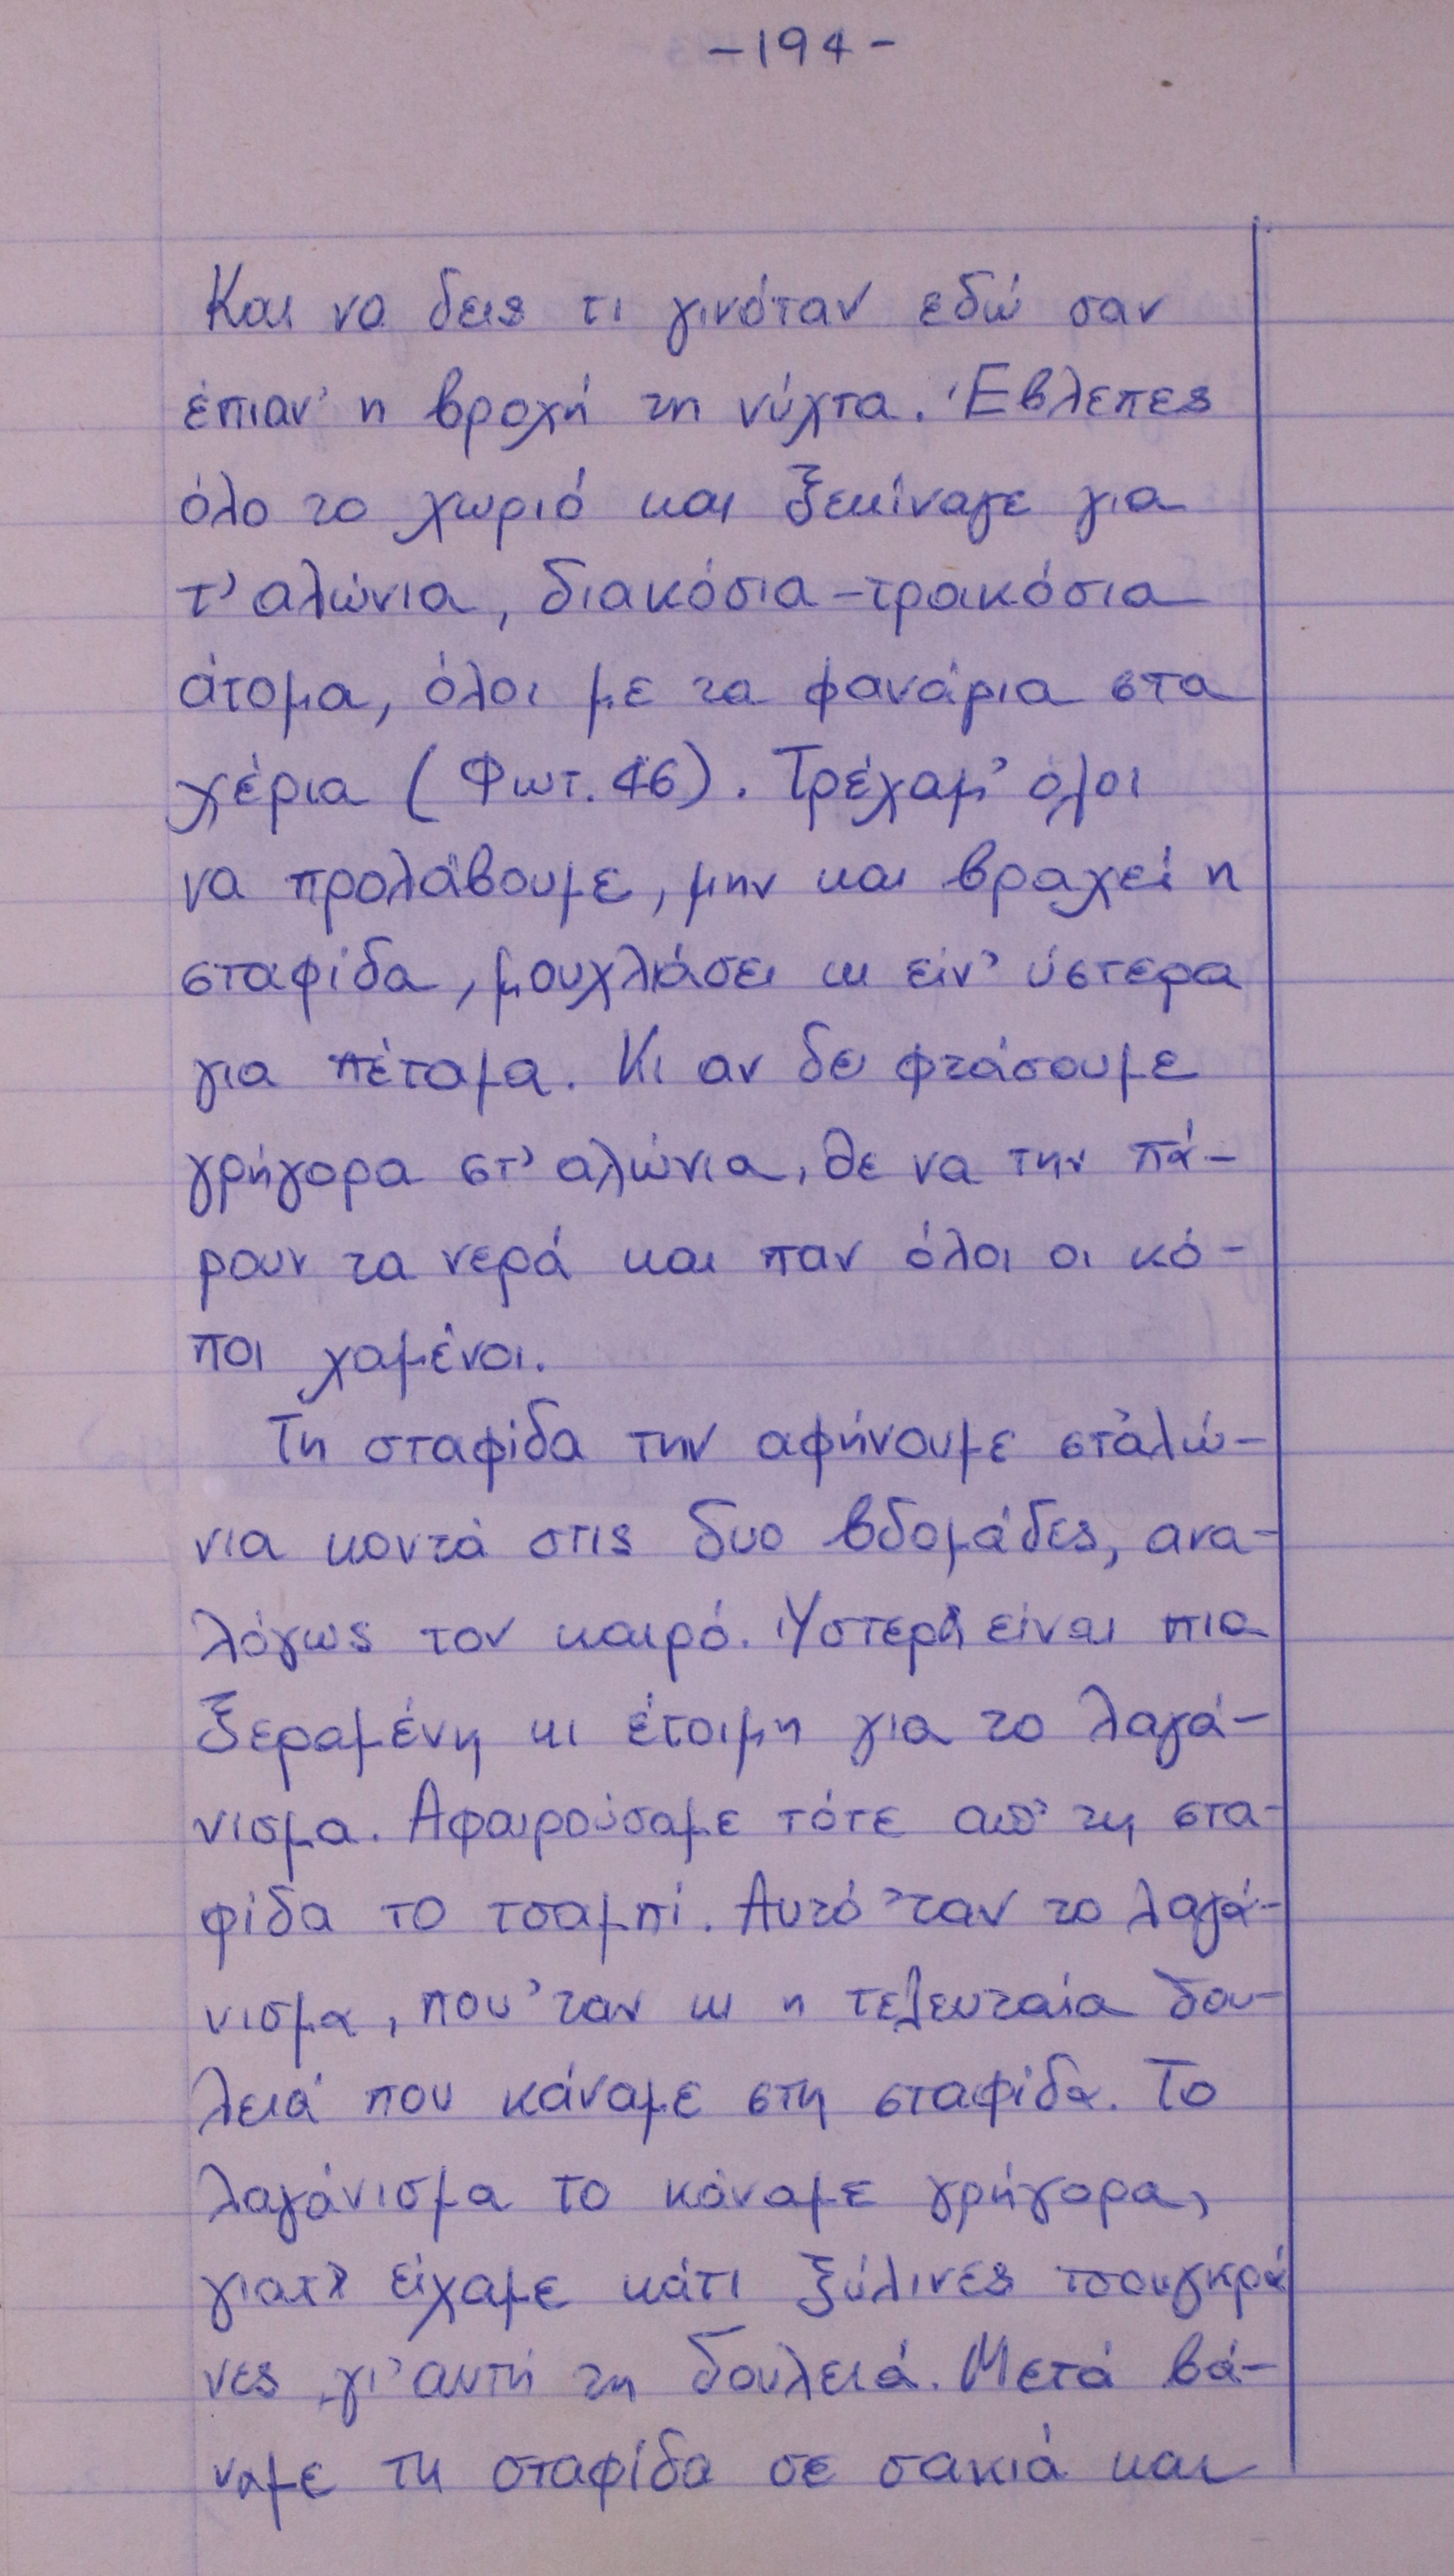 -194-
Και να δεις τι γινόταν εδώ σαν
έπιαν' η βροχή τη νύχτα. Έβλεπες
όλο το χωριό και ξεκίναγε για
τ' αλώνια, διακόσια-τρακόσια
άτομα, όλοι με τα φανάρια στα
χέρια (Φωτ. 46). Τρέχαμ' όλοι
να προλάβουμε, μην και βραχεί η
σταφίδα, μουχλιάσει κι είν' ύστερα
για πέταμα. Κι αν δε φτάσουμε
γρήγορα στ' αλώνια, θε να την πά-
ρουν τα νερά και παν όλοι οι κό-
ποι χαμένοι.
Τη σταφίδα την αφήνουμε στ' αλώ-
νια κοντά στις δυο βδομάδες, ανα-
λόγως τον καιρό. Ύστερα είναι πια
ξεραμένη κι έτοιμη για το λαγά-
νισμα. Αφαιρούσαμε τότε απ' τη στα-
φίδα το τσαμπί. Αυτό 'ταν το λαγά-
νισμα, που 'ταν κι η τελευταία δου-
λειά που κάναμε στη σταφίδα. Το
λαγάνισμα το κάναμε γρήγορα,
γιατί είχαμε κάτι ξύλινες τσουγκρά
νες γι' αυτή τη δουλειά. Μετά βά-
ναμε τη σταφίδα σε σακιά και